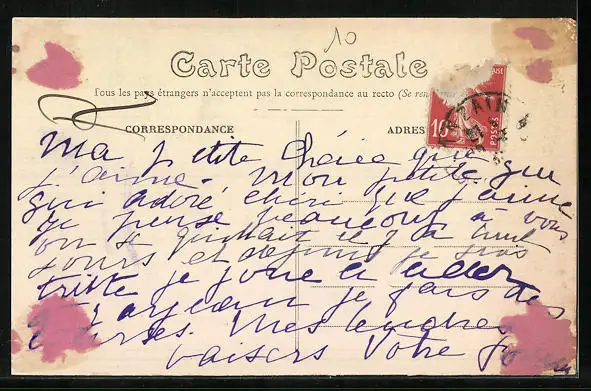 10
Carte Postale
Tous les pays étrangers n'acceptent pas la correspondance au recto (Se ren
CORRESPONDANCE
ADRES
10
POSTES
Ma petite Chérie que
j'aime. Mon petit
qui adoré chéri que j'aime
je pense beaucoup à vous
on se quittait il y a huit
jours et depuis je suis
triste je joue à
je fais des
Mes tendres
baisers Votre